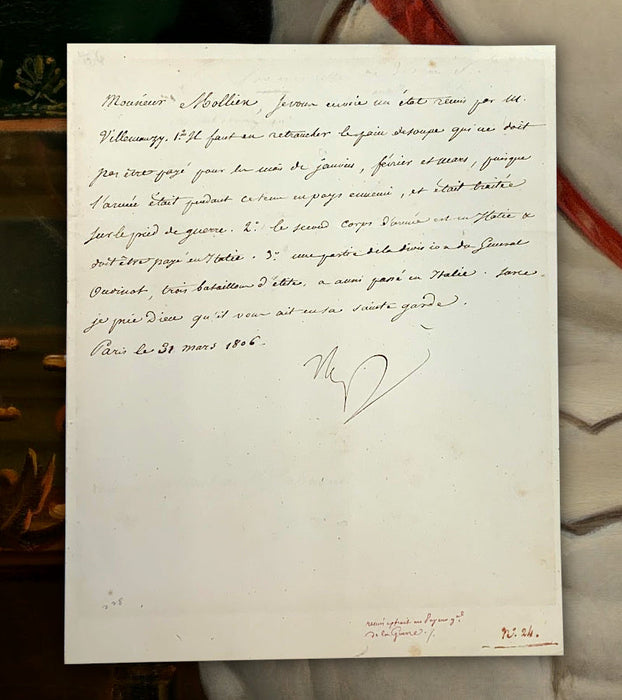 Monsieur Mollien, je vous envoie un état remis par M.
Villemanzy. 1º Il faut en retrancher le pain de soupe qui ne doit
pas être payé pour les mois de janvier, février et mars, puisque
l'armée était pendant ce tems en pays ennemi, et était traitée
sur le pied de guerre. 2º le second corps d'armée est en Italie &
doit être payé en Italie. 3º une partie de la division du Général
Oudinot, trois bataillons d'élite, a aussi passé en Italie. Sur ce
je prie Dieu qu'il vous ait en sa sainte garde.
Paris le 31 mars 1806.
Np
228
remis extrait au Payeur gal
de la Guerre ./.
Nº 24.